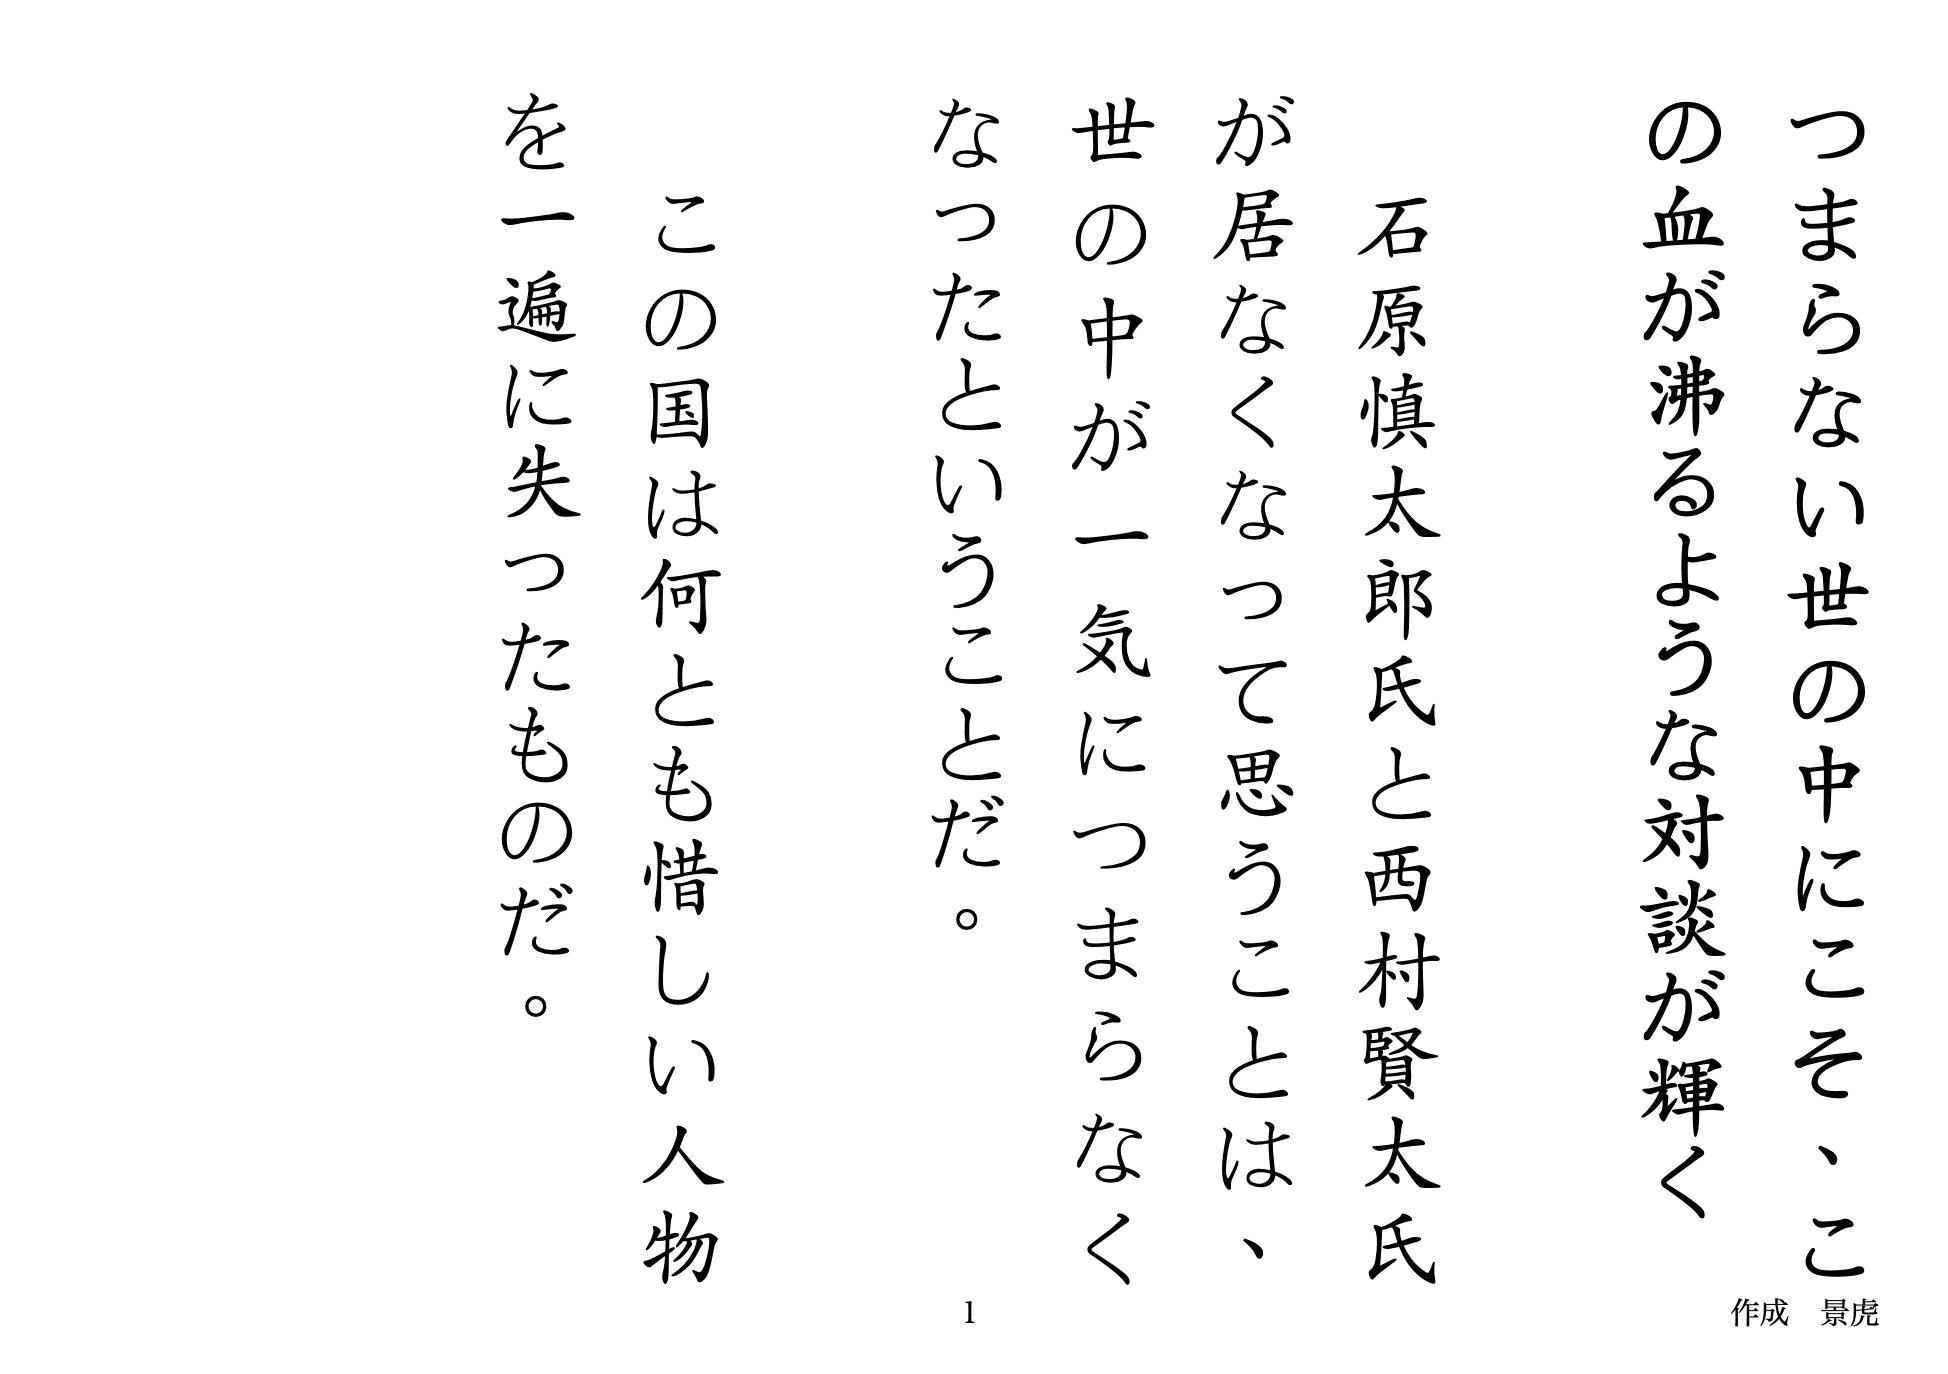 つまらない世の中にこそ、こ
の血が沸るような対談が輝く
石原慎太郎氏と西村賢太氏
が居なくなって思うことは、
世の中が一気につまらなく
なったということだ。
この国は何とも惜しい人物
を一遍に失ったものだ。
1
作成　景虎